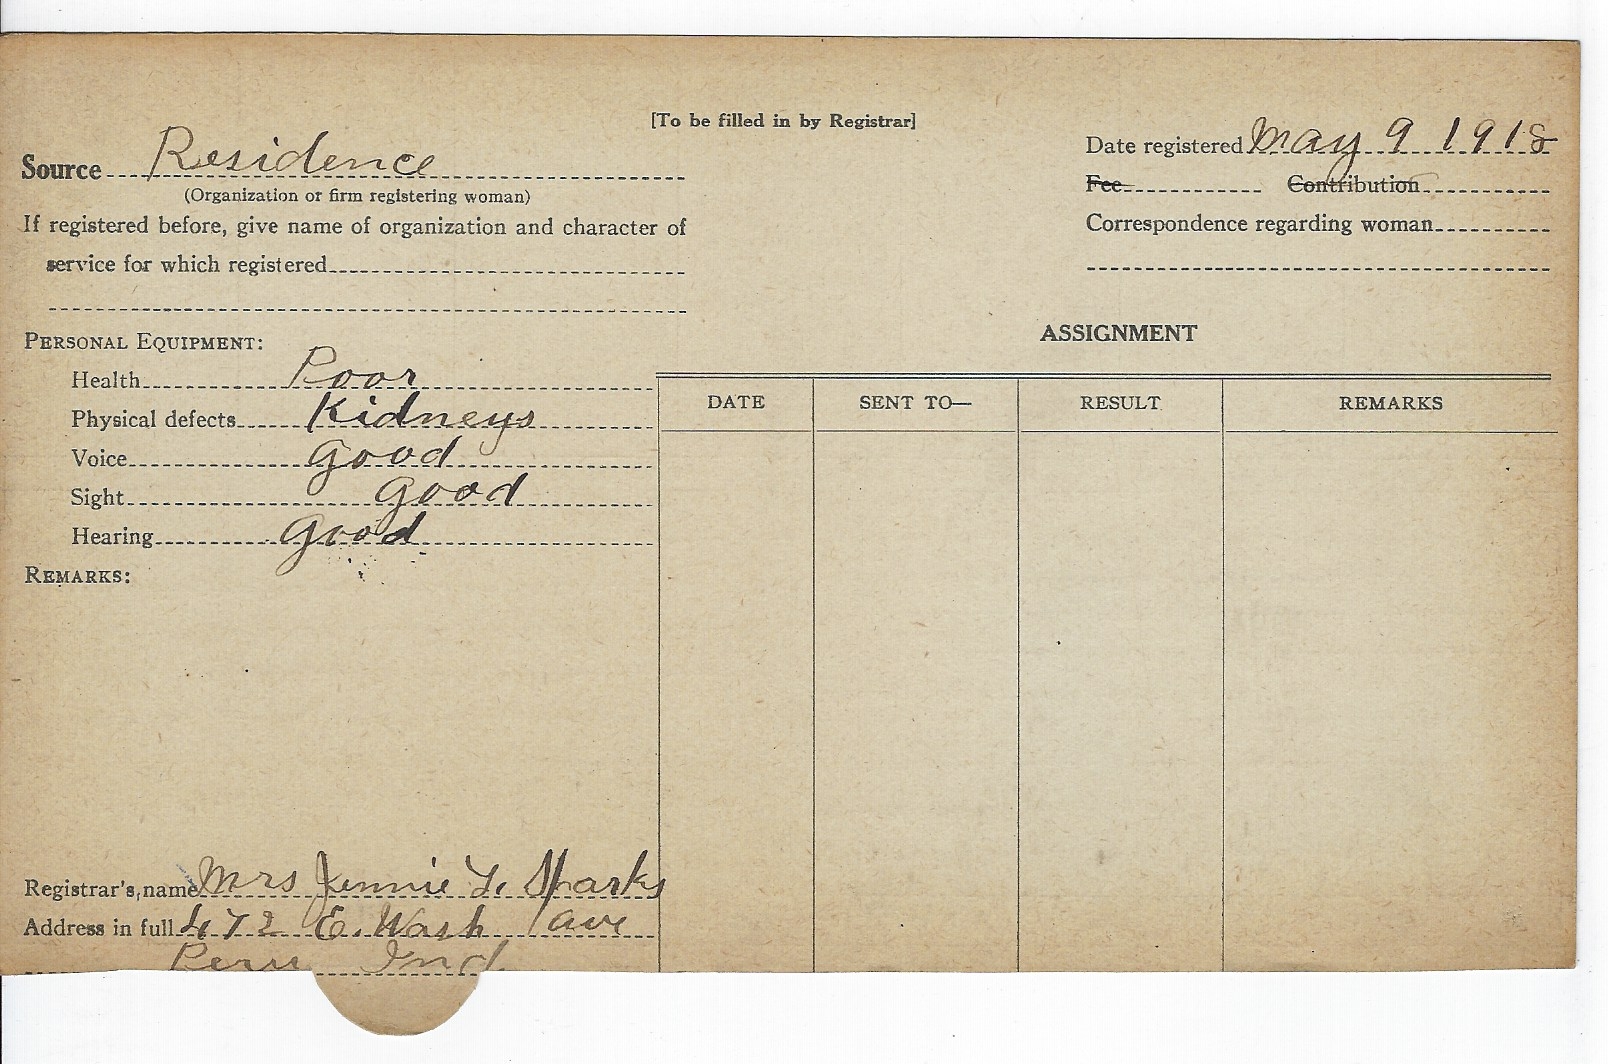 [To be filled in by Registrar]
Source Residence
(Organization or firm registering woman)
If registered before, give name of organization and character of
service for which registered
Date registered May 9 1918
Fee Contribution
Correspondence regarding woman
PERSONAL EQUIPMENT:
Health Poor
Physical defects Kidneys
Voice good
Sight good
Hearing good
REMARKS:
ASSIGNMENT
DATE SENT TO— RESULT REMARKS
Registrar's name Mrs Jennie L. Sparks
Address in full 472 E. Wash ave
Peru Ind.